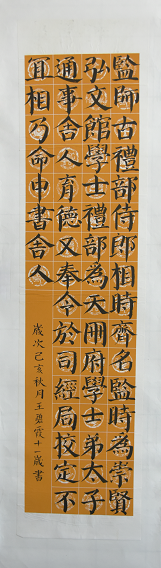 監師古禮部侍郎相時齊名監時為崇賢
弘文館學士禮部為天冊府學士弟太子
通事舍人育德又奉令於司經局挍定不
耳相乃命中書舍人
歲次己亥秋月王盈霞十一歲書